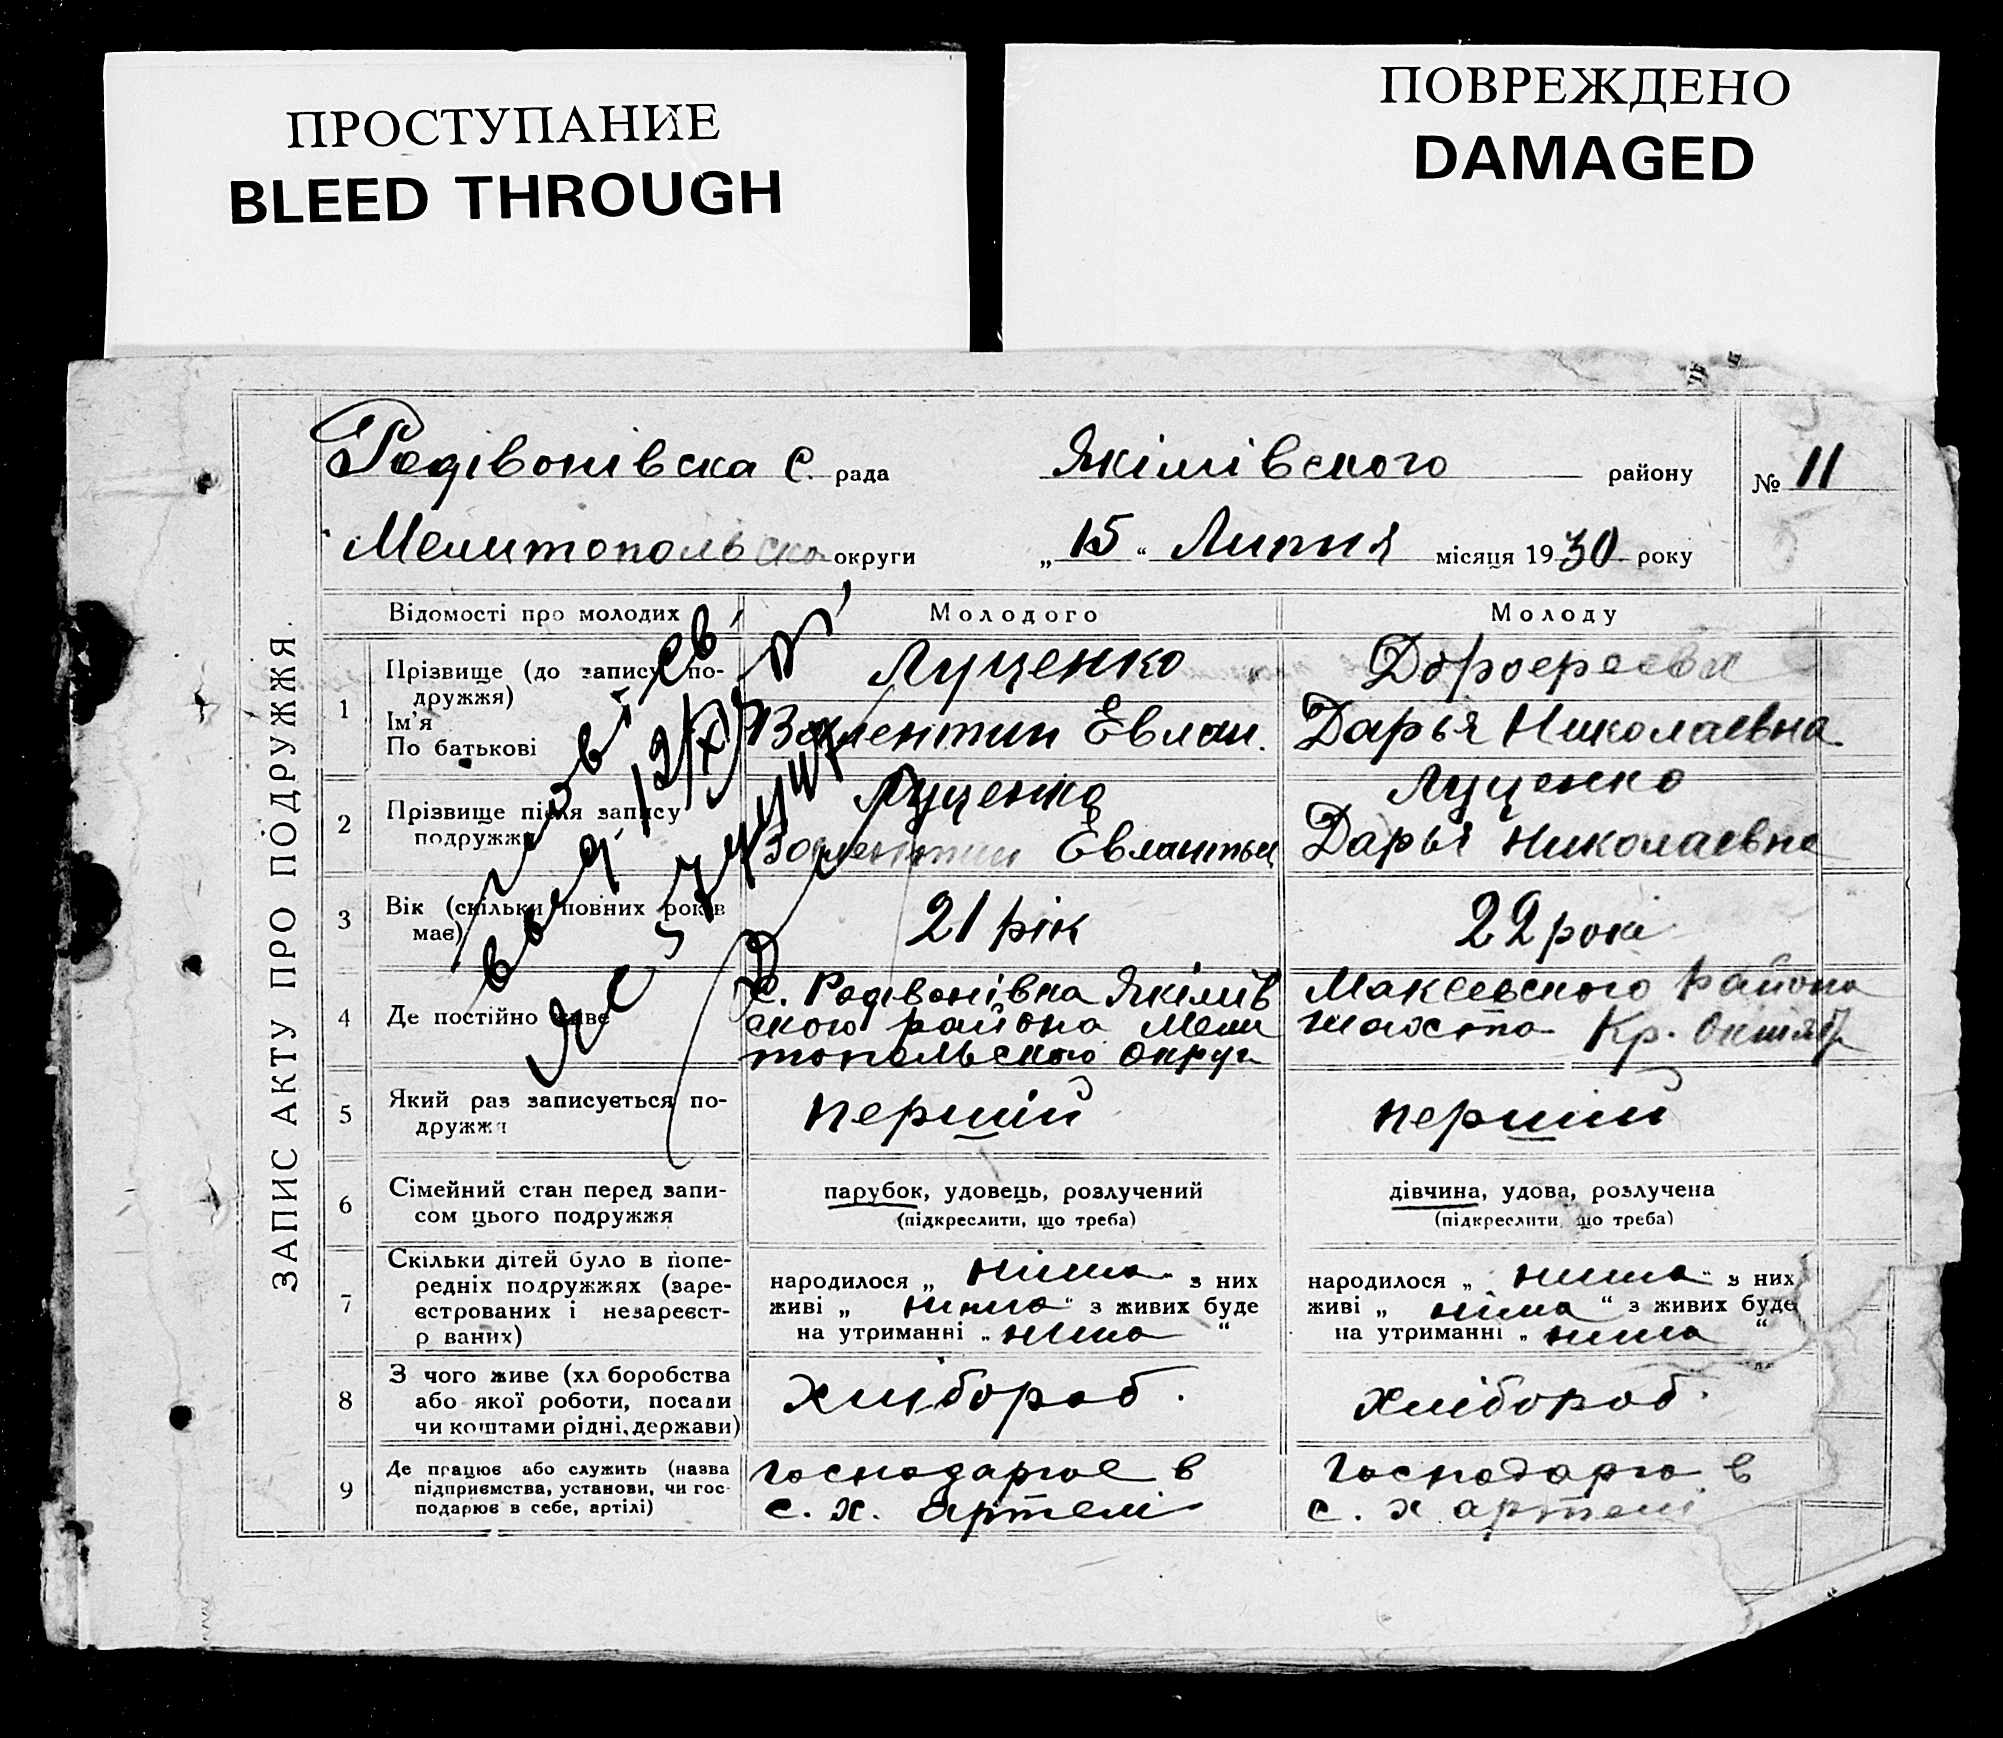 ПРОСТУПАНИЕ
BLEED THROUGH
ПОВРЕЖДЕНО
DAMAGED
ЗАПИС АКТУ ПРО ПОДРУЖЖЯ.
Родівонівска С. рада Якімівского району № 11
Мелитопольска округи „15“ Липня місяця 1930 року
Відомості про молодих Молодого Молоду
1 Прізвище (до запису подружжя)
Ім'я
По батькові
Луценко
Валентин Евлам.
Дарья Николаевна
2 Прізвище після запису
подружжя
Луценко
Валентин
Луценко
Дарья Николаевна
3 Вік (скільки повних років
має)
21 рік
22 рокі
4 Де постійно живе
с. Родівонівка Якімів
ского района Мели
топольского округи
Макеевского района
шахта Кр. Октяб
5 Який раз записується по-
дружжя
першій
першій
6 Сімейний стан перед запи-
сом цього подружжя
парубок, удовець, розлучений
(підкреслити, що треба)
дівчина, удова, розлучена
(підкреслити, що треба)
7 Скільки дітей було в попе-
редніх подружжях (заре-
єстрованих і незареєст-
р ваних)
народилося „нима“ з них
живі „нима“ з живих буде
на утриманні „нима“
народилося „нима“ з них
живі „німа“ з живих буде
на утриманні „нима“
8 З чого живе (хл боробства
або якої роботи, посади
чи коштами рідні, держави)
хлібороб.
хлібороб.
9 Де працює або служить (назва
підприємства, установи, чи гос-
подарює в себе, артілі)
господарює в
с. х. артелі
господарю в
с. х артелі